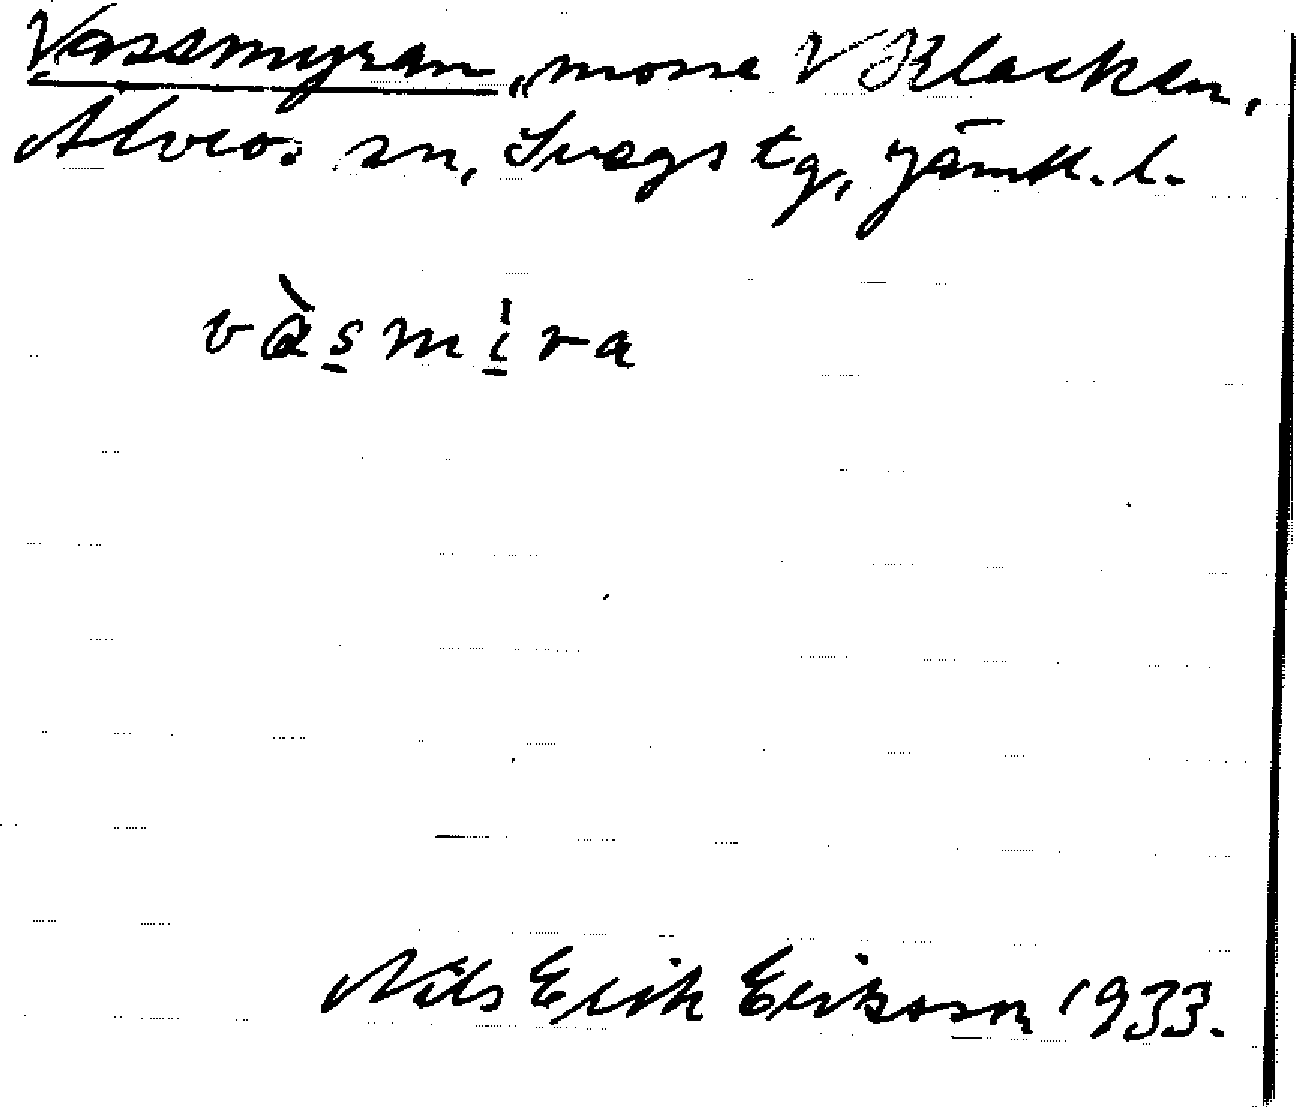 Vassmyran, mosse V Klacken,
Älvros sn, Svegs tg, Jämtl. l.
vàsmira
Nils Erik Erikson 1933.